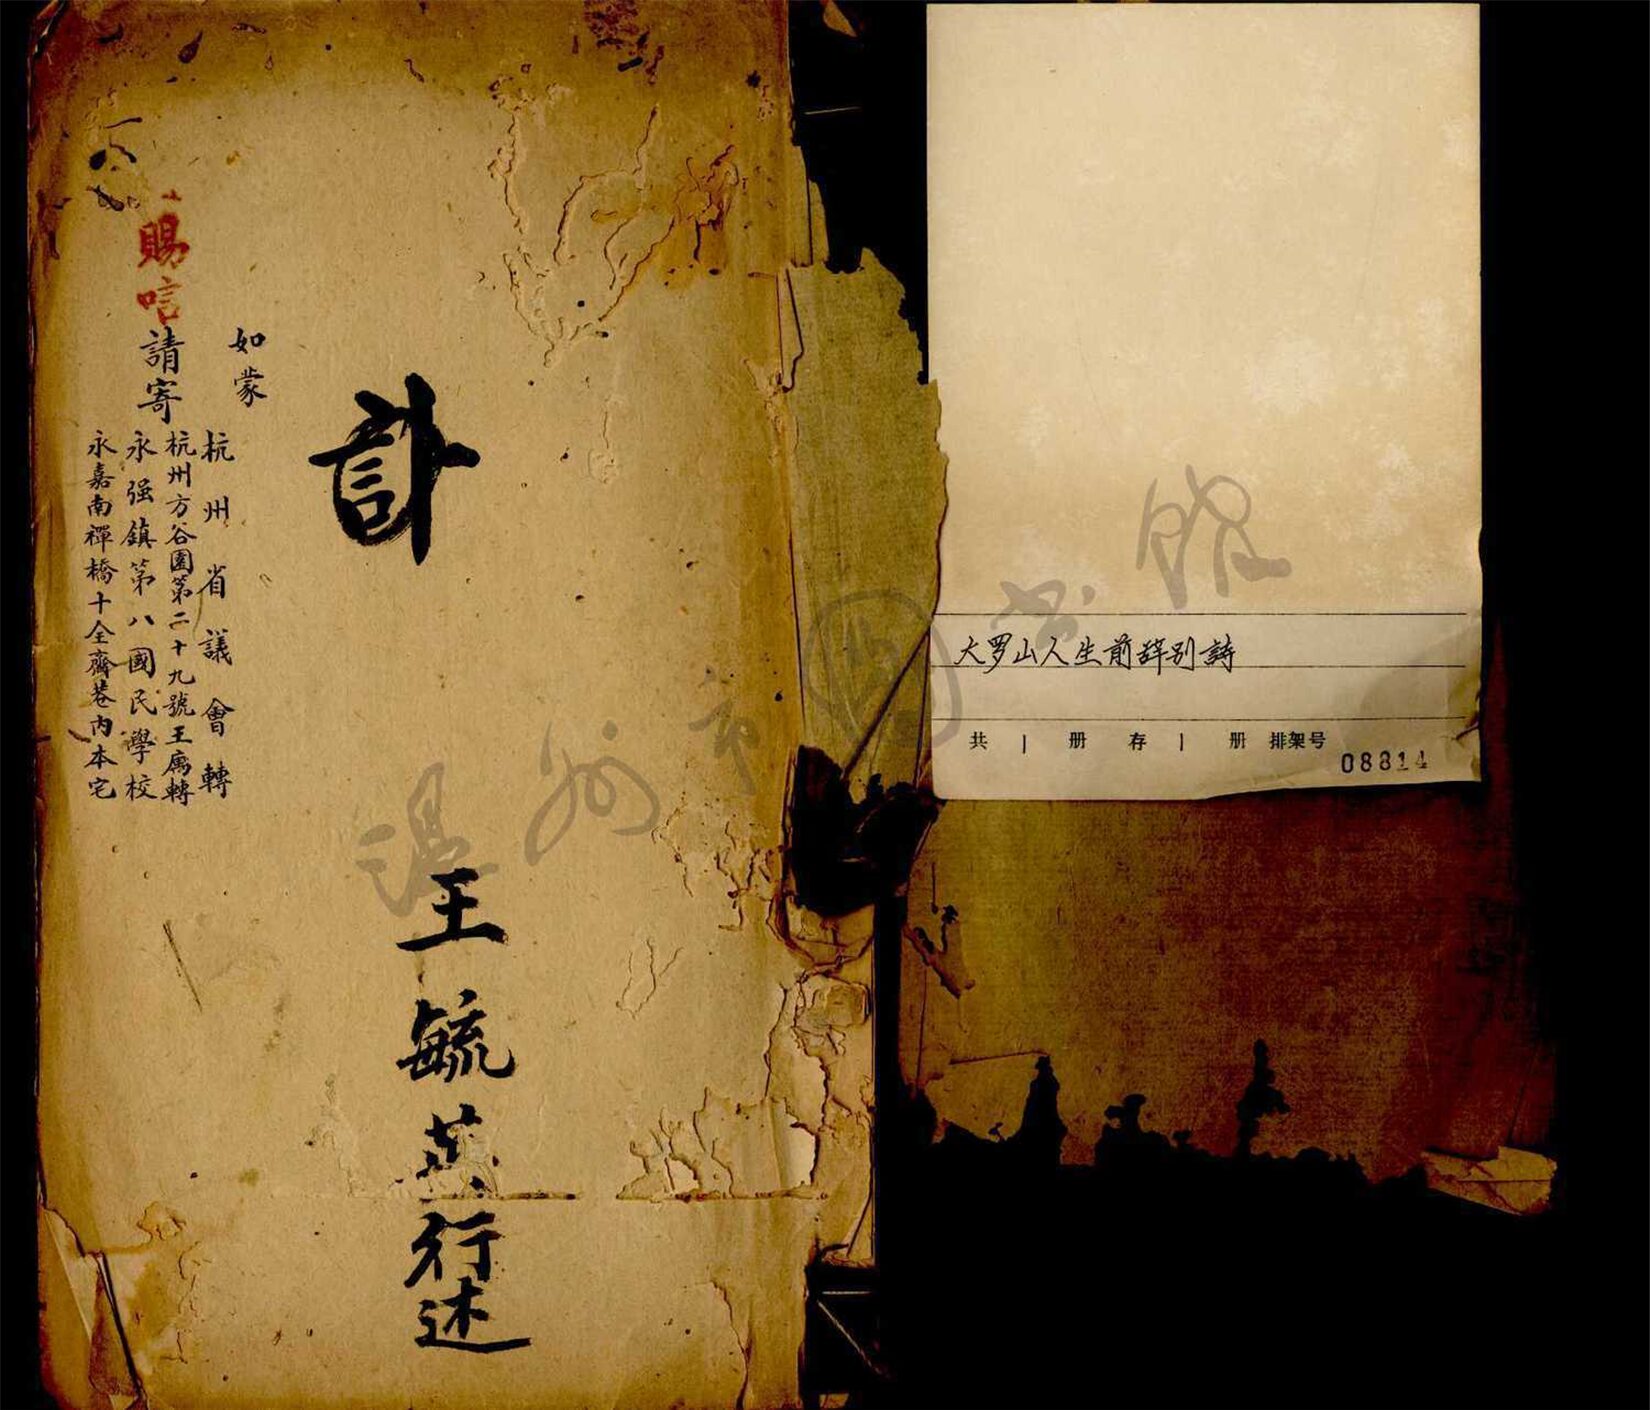 大罗山人生前辞别詩
共 1 册 存 1 册 排架号
08814
訃
王毓英行述
如蒙
賜唁請寄
杭州省議會轉
杭州方谷園第二十九號王庽轉
永强鎮第八國民學校
永嘉南禪橋十全齋巷内本宅
温州市图书馆